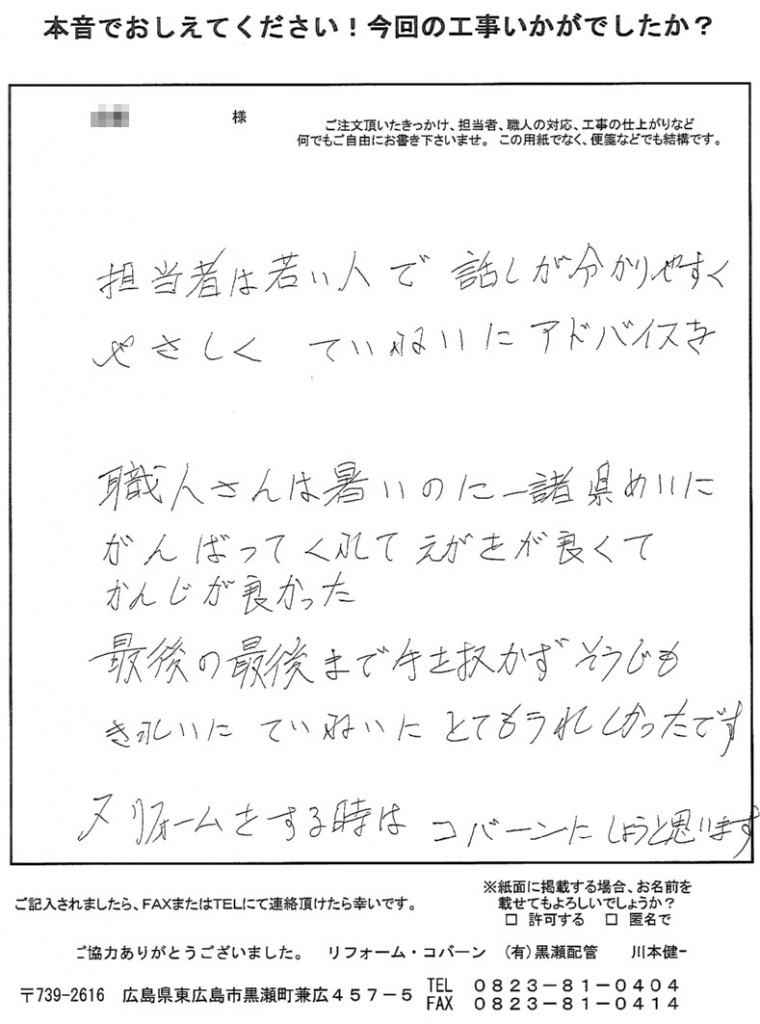 本音でおしえてください！今回の工事いかがでしたか？
様
ご注文頂いたきっかけ、担当者、職人の対応、工事の仕上がりなど
何でもご自由にお書き下さいませ。この用紙でなく、便箋などでも結構です。
担当者は若い人で 話しが分かりやすく
やさしく ていねいにアドバイスを
職人さんは暑いのに一諸県めいに
がんばってくれてえがをが良くて
かんじが良かった
最後の最後まで手を抜かずそうじも
きれいに ていねいに とてもうれしかったです
又リフォームをする時は コバーンにしようと思います
ご記入されましたら、FAXまたはTELにて連絡頂けたら幸いです。
※紙面に掲載する場合、お名前を
載せてもよろしいでしょうか？
□ 許可する □ 匿名で
ご協力ありがとうございました。 リフォーム・コバーン （有）黒瀬配管 川本健一
〒739-2616 広島県東広島市黒瀬町兼広４５７－５
TEL ０８２３－８１－０４０４
FAX ０８２３－８１－０４１４